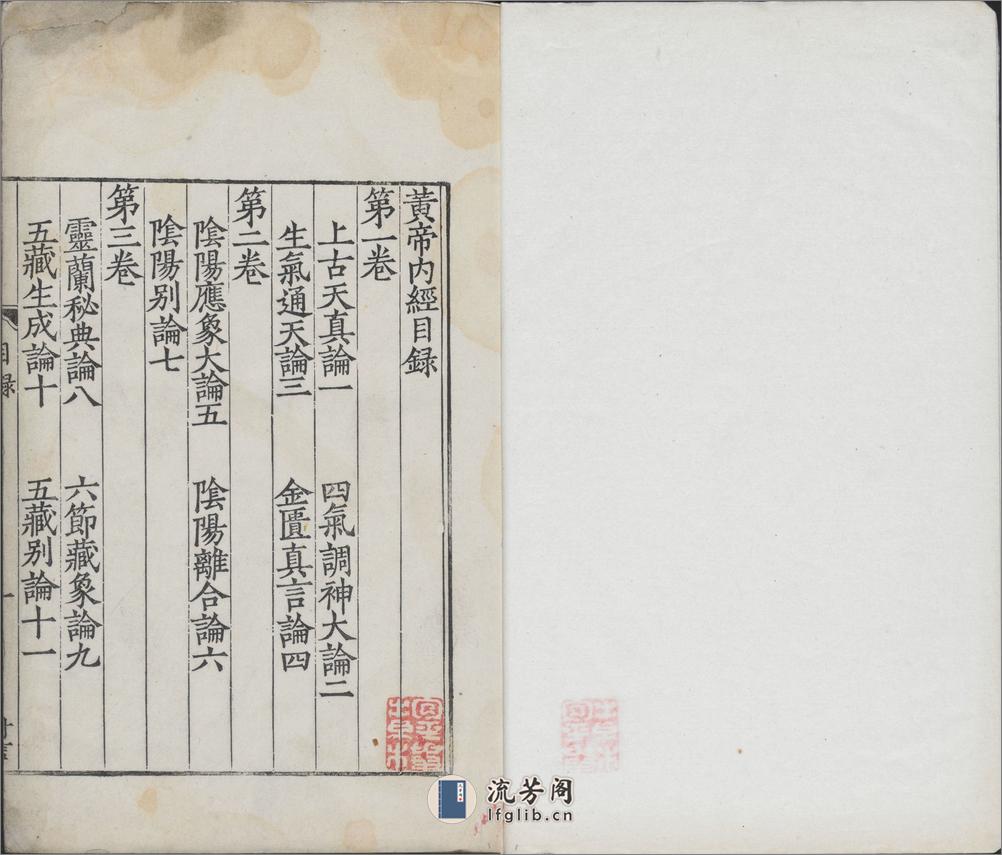 黃帝内經目録
第一卷
上古天真論一　四氣調神大論二
生氣通天論三　金匱真言論四
第二卷
陰陽應象大論五　陰陽離合論六
陰陽别論七
第三卷
靈蘭秘典論八　六節藏象論九
五藏生成論十　五藏别論十一
目録
一
流芳阁
lfglib.cn